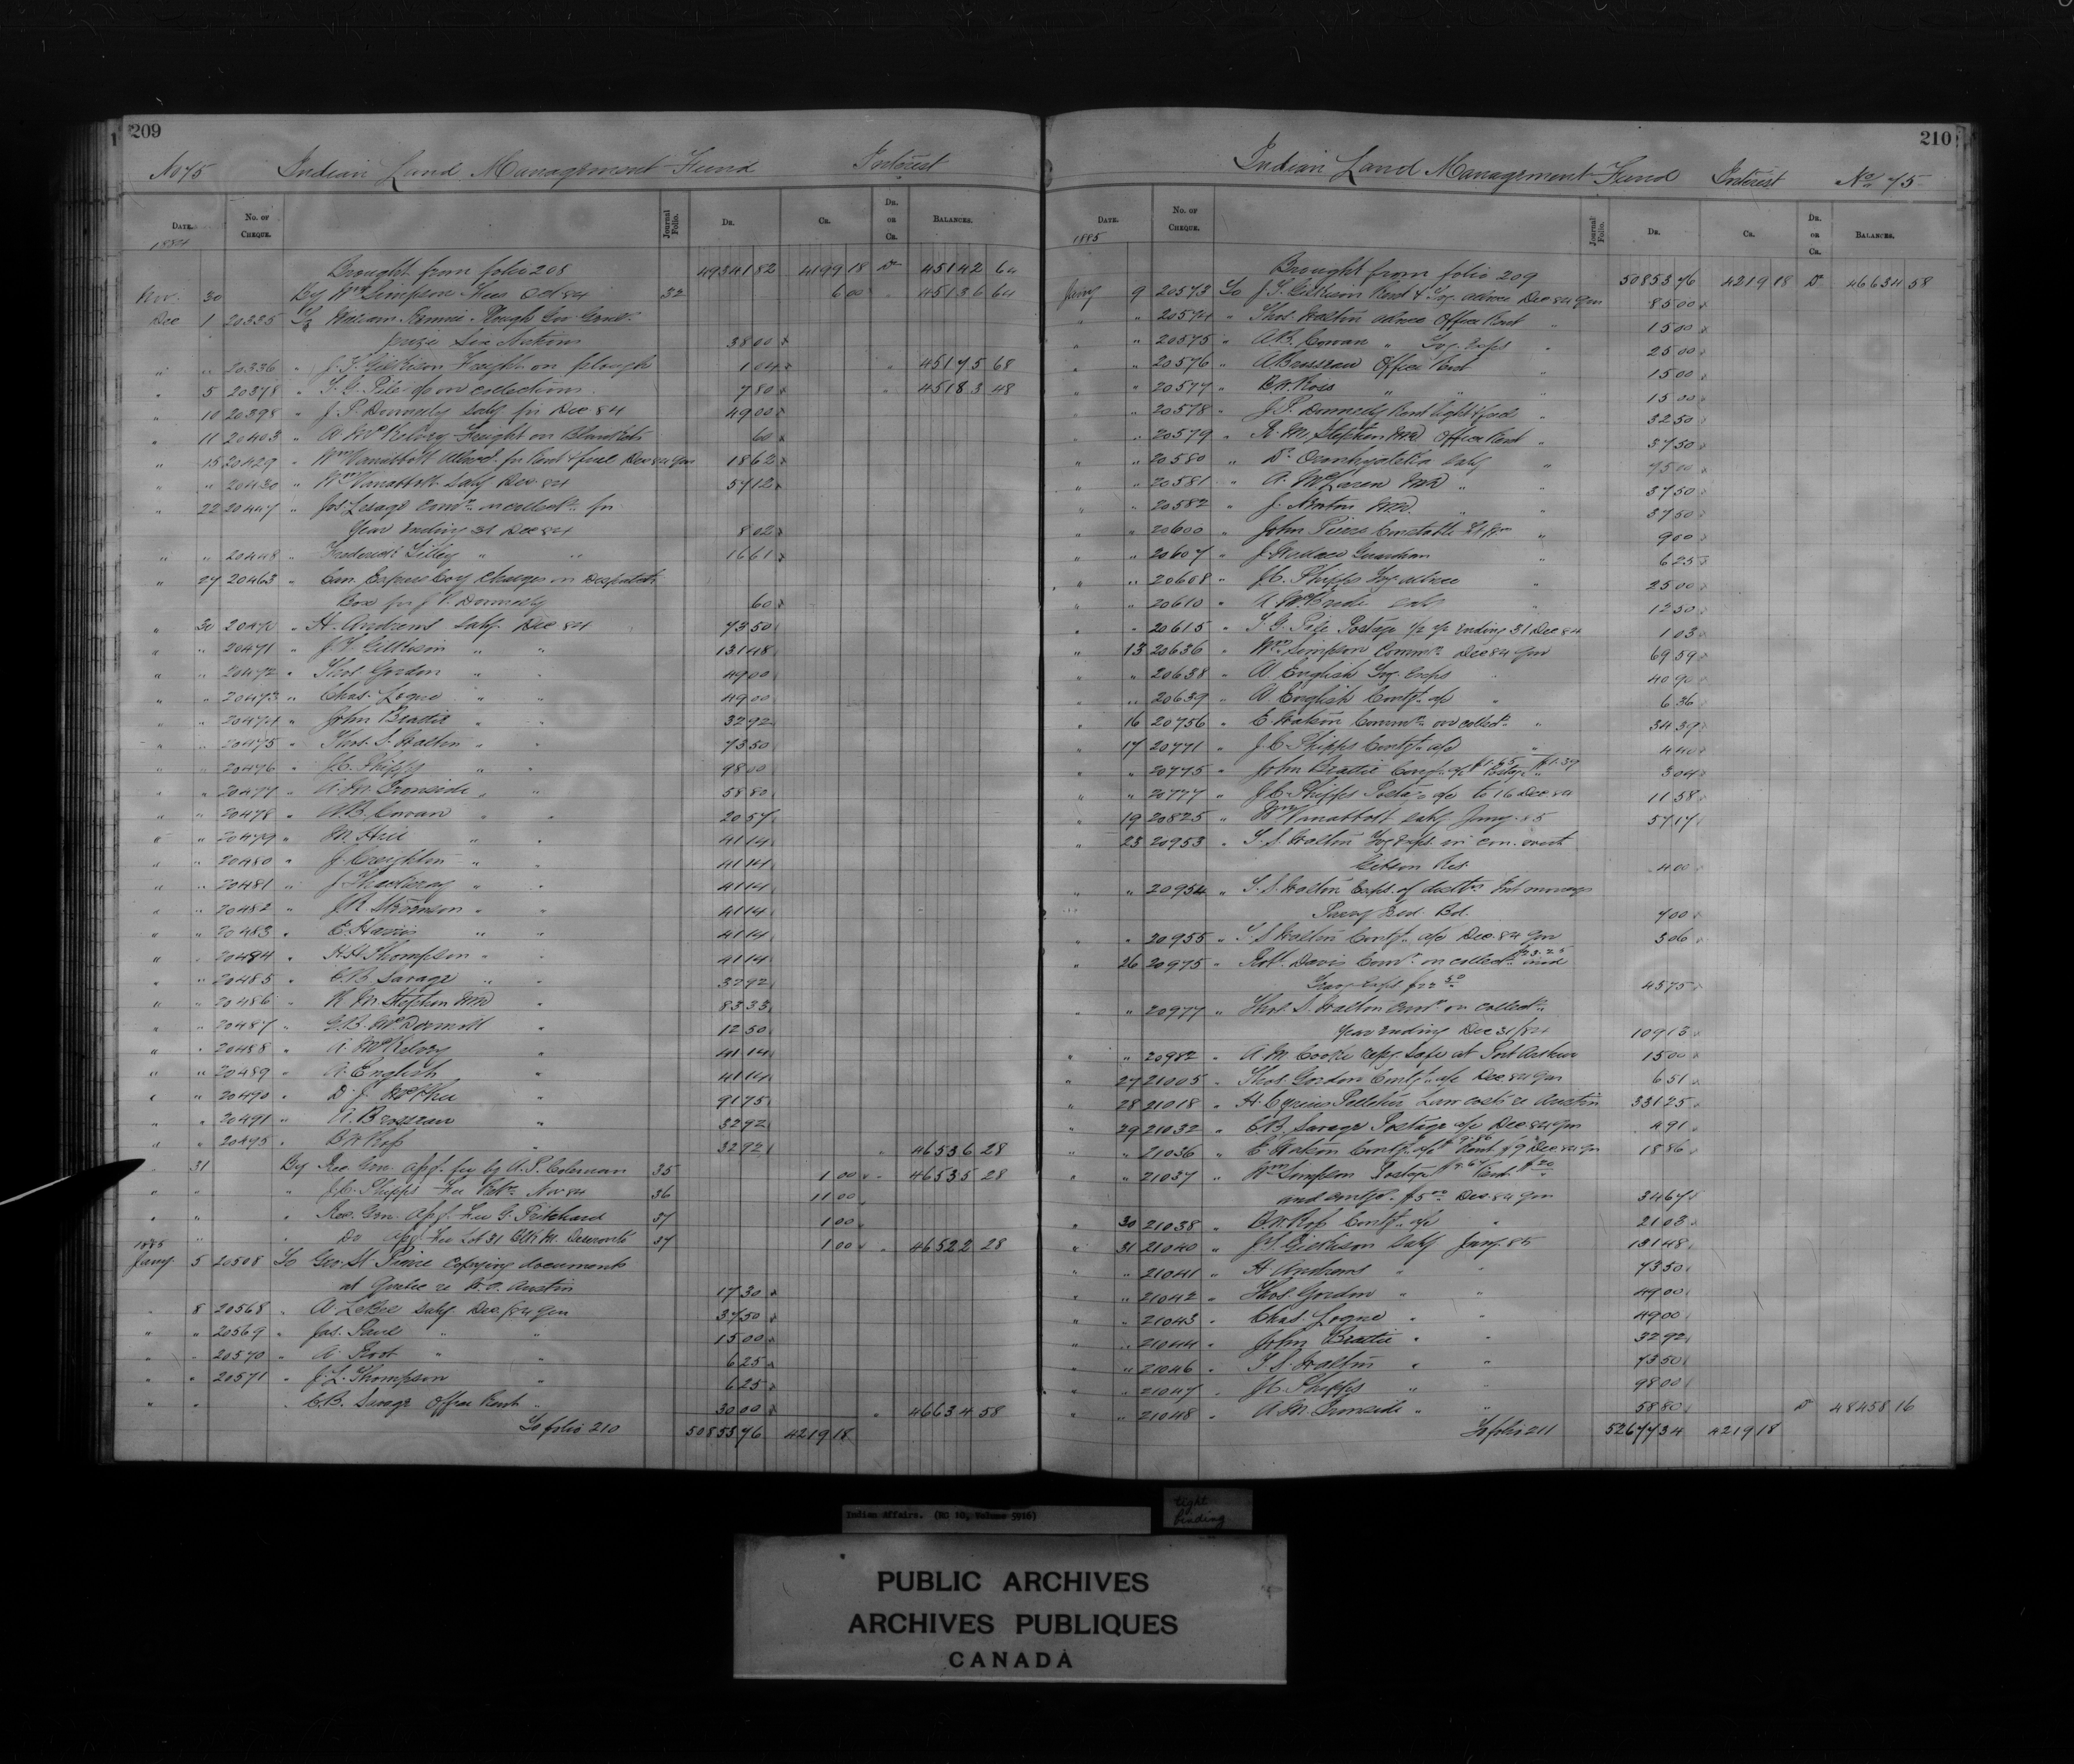 209
No 75 Indian Land Management Fund Interest
DATE. No. OF CHEQUE. Journal Folio. DR. CR. DR. OR CR. BALANCES.
1884
Brought from folio 208 49341 82 4199 18 Dr 45142 64
Nov. 30 By Wm Simpson Fees Oct 84 32 6 00 " 45136 64
Dec 1 20335 To William Rennie Plough Gov Genls.
prize Six Nations 38 00
" " 20336 " J. T. Gilkison Freight on plough 1 04 " 45175 68
" 5 20378 " T. G. Pile do on collections 7 80 " 45183 48
" 10 20398 " J. P. Donnelly Saly for Dec 84 49 00
" 11 20403 " A McKelvey Freight on Blankets 60
" 15 20429 " Wm Vanabbott allwd. for Rent & fuel Dec 84 Qr 18 62
" " 20430 " Wm Vanabbott Saly Dec. 84 57 12
" 22 20447 " Jos. Lesage Comn. on collectn. for
Year Ending 31 Dec 84 8 02
" " 20448 " Frederick Lilley " " 16 61
" 27 20463 " Can. Express Coy Charges on Despatch
Box for J. P. Donnelly 60
" 30 20470 " H. Andrews Saly Dec 84 73 50
" " 20471 " J. T. Gilkison " " 131 48
" " 20472 " Thos. Gordon " " 49 00
" " 20473 " Chas. Logne " " 49 00
" " 20474 " John Beattie " " 32 92
" " 20475 " Thos. S. Walton " " 73 50
" " 20476 " J.C. Phipps " " 98 00
" " 20477 " A. M. Ironside " " 58 80
" " 20478 " A.B. Cowan " " 20 57
" " 20479 " M. Hill " " 41 14
" " 20480 " J. Creighton " " 41 14
" " 20481 " " " 41 14
" " 20482 " " " 41 14
" " 20483 " E. Harris " " 41 14
" " 20484 " H.H. Thompson " " 41 14
" " 20485 " C.B. Savage " " 32 92
" " 20486 " R. M. Stephen MD " 83 33
" " 20487 " G.B. McDermott " 12 50
" " 20488 " A. McKelvey " 41 14
" " 20489 " A. English " 41 14
" " 20490 " D. J. McPhee " 91 75
" " 20491 " A. Brosseau " 32 92
" " 20495 " B W Ross " 32 92 " 46536 28
" 31 By Rec. Gen. apf. fee by A. P. Coleman 35 1 00 " 46535 28
" " " J.C. Phipps Fee Retn. Nov 84 36 11 00
" " " Rec. Gen. Apf. Fee G. Pritchard 37 1 00
" " " Do Apf Fee Lot 31 Deseronto 37 1 00 " 46522 28
1885
Jany 5 20508 To Geo. St Pierre Copying documents
at Quebec re Austin 17 30
" 8 20568 " A. LeBel Saly Dec/84 Qr 37 50
" " 20569 " Jas. Paul " " 15 00
" " 20570 " A. Root " " 6 25
" " 20571 " J. L. Thompson " 6 25
" " " C.B. Savage Office Rent " 30 00 " 46634 58
To folio 210 50853 76 4219 18
210
Indian Land Management Fund Interest No 75
DATE. No. OF CHEQUE. Journal Folio. DR. CR. DR. OR CR. BALANCES.
1885
Brought from folio 209 50853 76 4219 18 Dr 46634 58
Jany 9 20573 To J. T. Gilkison Rent & Tvg. allnce Dec 84 Qr 85 00
" " 20574 " Thos. Walton allnce Office Rent " 15 00
" " 20575 " A.B. Cowan " Tvg. Exps " 25 00
" " 20576 " A Brosseau Office Rent " 15 00
" " 20577 " B. W. Ross " " " 15 00
" " 20578 " J. P. Donnelly Rent light & fuel " 32 50
" " 20579 " R. M. Stephen MD Office Rent " 37 50
" " 20580 " Dr. Oronhyatekha Saly " 75 00
" " 20581 " A. McLaren MD " " 37 50
" " 20582 " J. Newton MD. " " 37 50
" " 20600 " John Pierce Constable " 9 00
" " 20607 " J. Wallace Guardian " 6 25
" " 20608 " J.C. Phipps Tvg. allnce " 25 00
" " 20610 " A. McBride Saly " 12 50
" " 20615 " T. G. Pile Postage 1/2 yr Ending 31 Dec 84 1 03
" 13 20636 " Wm Simpson Commn Dec 84 Qr 69 59
" " 20638 " A. English Tvg. Exps " 40 90
" " 20639 " A. English Contgt. a/c " 6 36
" 16 20756 " E Watson Commn on collectn. " 34 39
" 17 20771 " J.C. Phipps Contgt. a/c " 4 40
" " 20775 " John Beattie Contgt. a/c $1.65 Postage $1.39 3 04
" " 20777 " J.C. Phipps Postage a/c to 16 Dec. 84 11 58
" 19 20825 " Wm Vanabbott Saly Jany. 85 57 17
" 23 20953 " T. S. Walton Tvg Exps. in con. with
Gibson Res. 4 00
" " 20954 " T. S. Walton Exps. of
Parry Snd. Bd. 7 00
" " 20955 " T S Walton Contgt. a/c Dec. 84 Qr 3 06
" 26 20975 " Robt. Davis Comn. on collectn. $23.25 and
45 75
" 20977 " Thos. S. Walton Comn. on collectn.
Year Ending Dec 31/84 109 13
" " 20982 " A. M. Cooke repg. Safe at Port Arthur 15 00
" 27 21005 " Thos. Gordon Contgt. a/c Dec. 84 Qr 6 51
" 28 21018 " H. Cyrias Pelletier Law costs re Austin 331 25
" 29 21032 " C.B. Savage Postage a/c Dec 84 Qr 4 91
" 21036 " E Watson Contgt. a/c $9.86 Rent $9 Dec. 84 Qr 18 86
" 21037 " Wm Simpson Postage $9.67 Rent $20
and contgt. $5.00 Dec. 84 Qr 34 67
" 30 21038 " B.W. Ross Contgt. a/c " 21 03
" 31 21040 " J.T. Gilkison Saly Jany. 85 131 48
" " 21041 " H Andrews " " 73 50
" " 21042 " Thos. Gordon " " 49 00
" " 21043 " Chas. Logne " " 49 00
" " 21044 " John Beattie " " 32 92
" " 21046 " T S. Walton " " 73 50
" " 21047 " J.C. Phipps " " 98 00
" " 21048 " A. M. Ironside " " 58 80 Dr 48458 16
To folio 211 52677 34 4219 18
Indian Affairs. (RG 10, Volume 5916)
tight
binding
PUBLIC ARCHIVES
ARCHIVES PUBLIQUES
CANADA